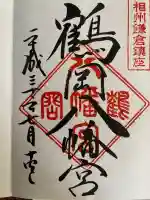 相州鎌倉鎮座
鶴岡八幡宮
平成三十年七月